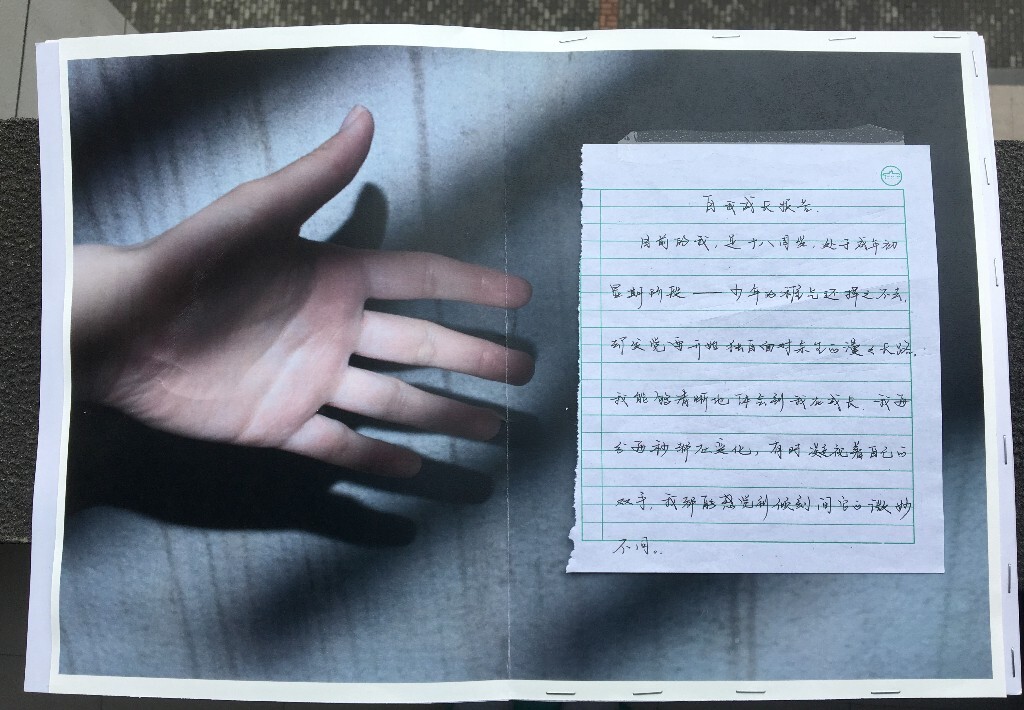 自我成长报告.
目前的我，是十八周岁.处于成年初
显期阶段——少年的稚气还挥之不去，
却发觉要开始独自面对余生的漫漫长路.
我能够清晰地体会到我在成长.我每
分每秒都在变化，有时凝视着自己的
双手，我都能感觉到倾刻间它的微妙
不同。